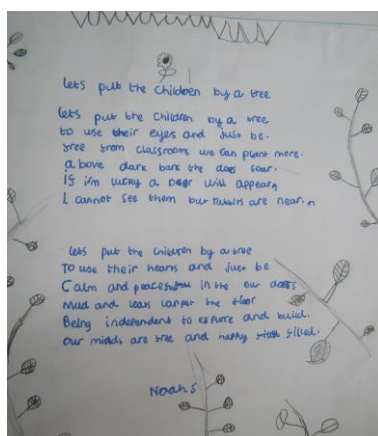 lets put the children by a tree
lets put the children by a tree
to use their eyes and just be.
free from classrooms we can plant more.
above dark bark the does soar.
if i'm lucky a Deer will appear,
I cannot see them but rabbits are near.
lets put the children by a tree
To use their hears and just be
Calm and peaceful in the our doors
Mud and leafs carpet the floor
Being independent to explore and build.
Our minds are free and happy filled.
Noah S